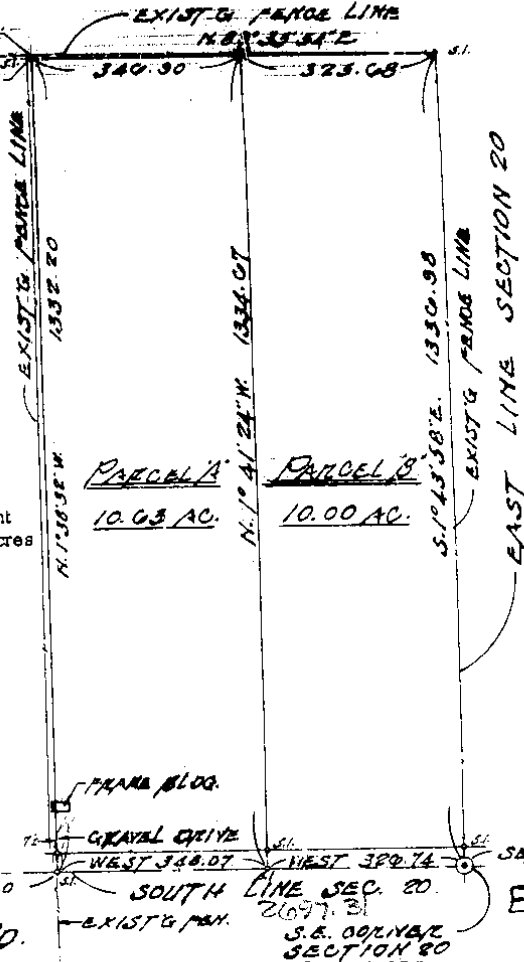 EXIST'G FENCE LINE
346.30
323.68
S.I.
EXIST'G FENCE LINE
1332.20
N. 1° 38' 32" W.
1334.67
N. 1° 41' 24" W.
1336.98
S. 1° 43' 58" E.
EXIST'G FENCE LINE
EAST LINE SECTION 20
PARCEL 'A'
10.63 AC.
PARCEL 'B'
10.00 AC.
FRAME BLDG.
GRAVEL DRIVE
S.I.
S.I.
WEST 346.07
WEST 328.74
S.I.
SOUTH LINE SEC. 20.
2697.31
EXIST'G FEN.
S.E. CORNER
SECTION 20